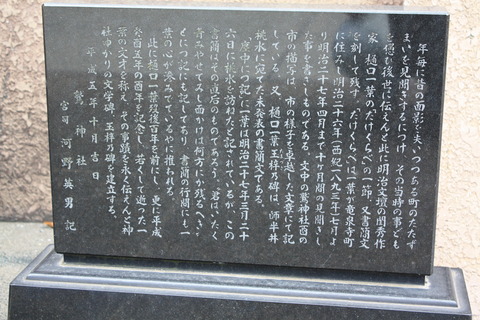 年毎に昔の面影を失いつつある町のたたず
まいを見聞きするにつけ、その当時の事ども
を偲び後世に伝えんと此に明治文壇の閨秀作
家、樋口一葉のたけくらべの一節、又書簡文
を刻して残す。たけくらべは一葉が竜泉寺町
に住みし明治二十六年(西紀一八九三年)七月よ
り明治二十七年四月まで十ヶ月間の見聞きし
た事を書きしものである。文中の鷲神社酉の
市の描写は、市の様子を卓越した文章にて記
している。又樋口一葉玉梓乃碑は、師半井
桃水に宛てた未発表の書簡文である。
庫中につ記に一葉は明治二十七年三月二十
六日に桃水を訪ねたと記されているが、この
書簡はその直后のものであろう。君はいたく
青みやせてみし面かげは何方にか残るべき
とにつ記にも記してあり、書簡の行間にも一
葉の心が滲みでているやに推われる。
此に樋口一葉歿後百年を前にし、更に平成
癸酉五年の酉年を記念し、若くして逝った一
葉の文才を称え、その事蹟を永く伝えんと神
社ゆかりの文学碑、玉梓乃碑を建立する。
平成五年十月吉日
鷲神社
宮司 河野英男 記